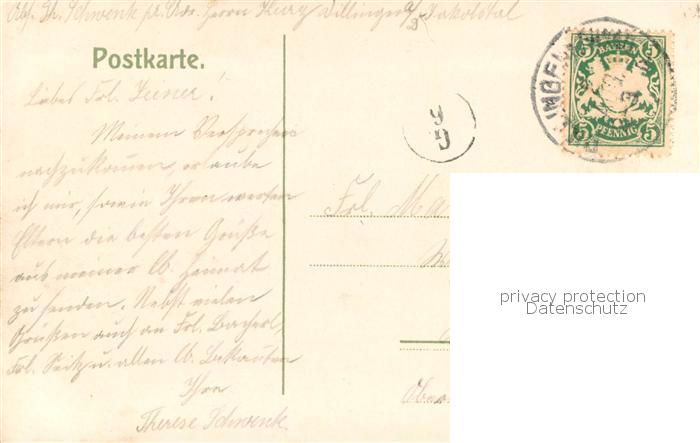 Abs. Th. Schwenk pr. Adr. Herrn Kurz Dillingen a/D Jakobstal
Postkarte.
Liebes Frl. Zeiner!
Meinem Versprechen
nachzukommen, erlaube
ich mir, sowie Ihren werten
Eltern die besten Grüße
aus meiner lb. Heimat
zu senden. Nebst vielen
Grüßen auch an Frl. Bacherl,
Frl. Seitz u. allen lb. Bekannten
Ihre
Therese Schwenk.
BAYERN
5 5
5 5
PFENNIG
Frl. Ma
privacy protection
Datenschutz